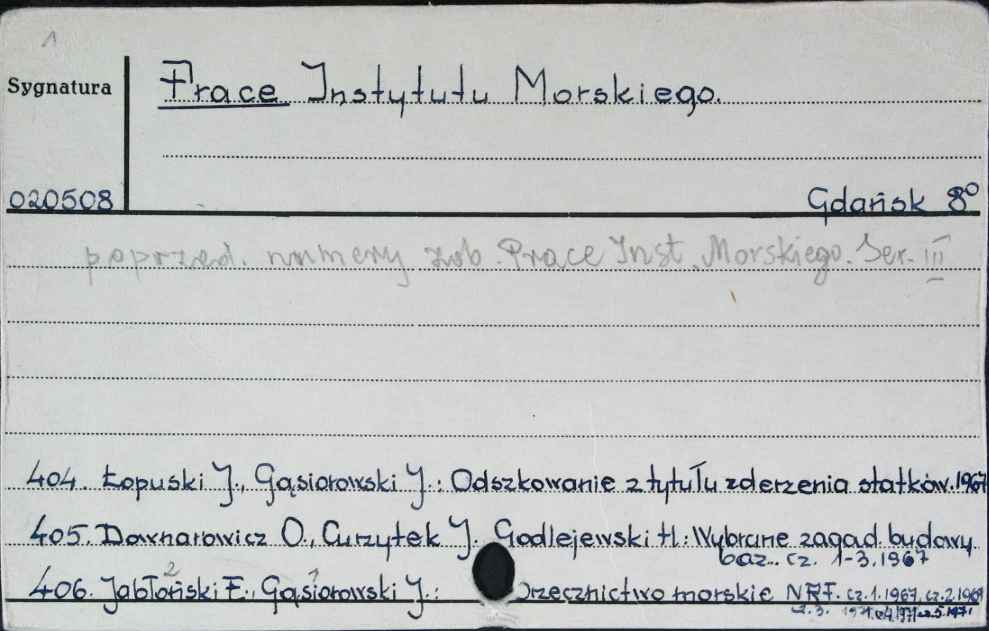 1
Sygnatura
Prace Instytutu Morskiego.
020508
Gdańsk 8°
poprzed. numery zob. Prace Inst. Morskiego. Ser. III
404. Łopuski J., Gąsiorowski J.: Odszkowanie z tytułu zderzenia statków. 1967
405. Darnarowicz O., Curzytek J. Godlejewski H.: Wybrane zagad. budowy
baz.. cz. 1-3. 1967
2 1
406. Jabłoński F., Gąsiorowski J.: orzecznictwo morskie NRF. cz.1.1967, cz.2.1969
cz.3. 1971 cz.5.1971